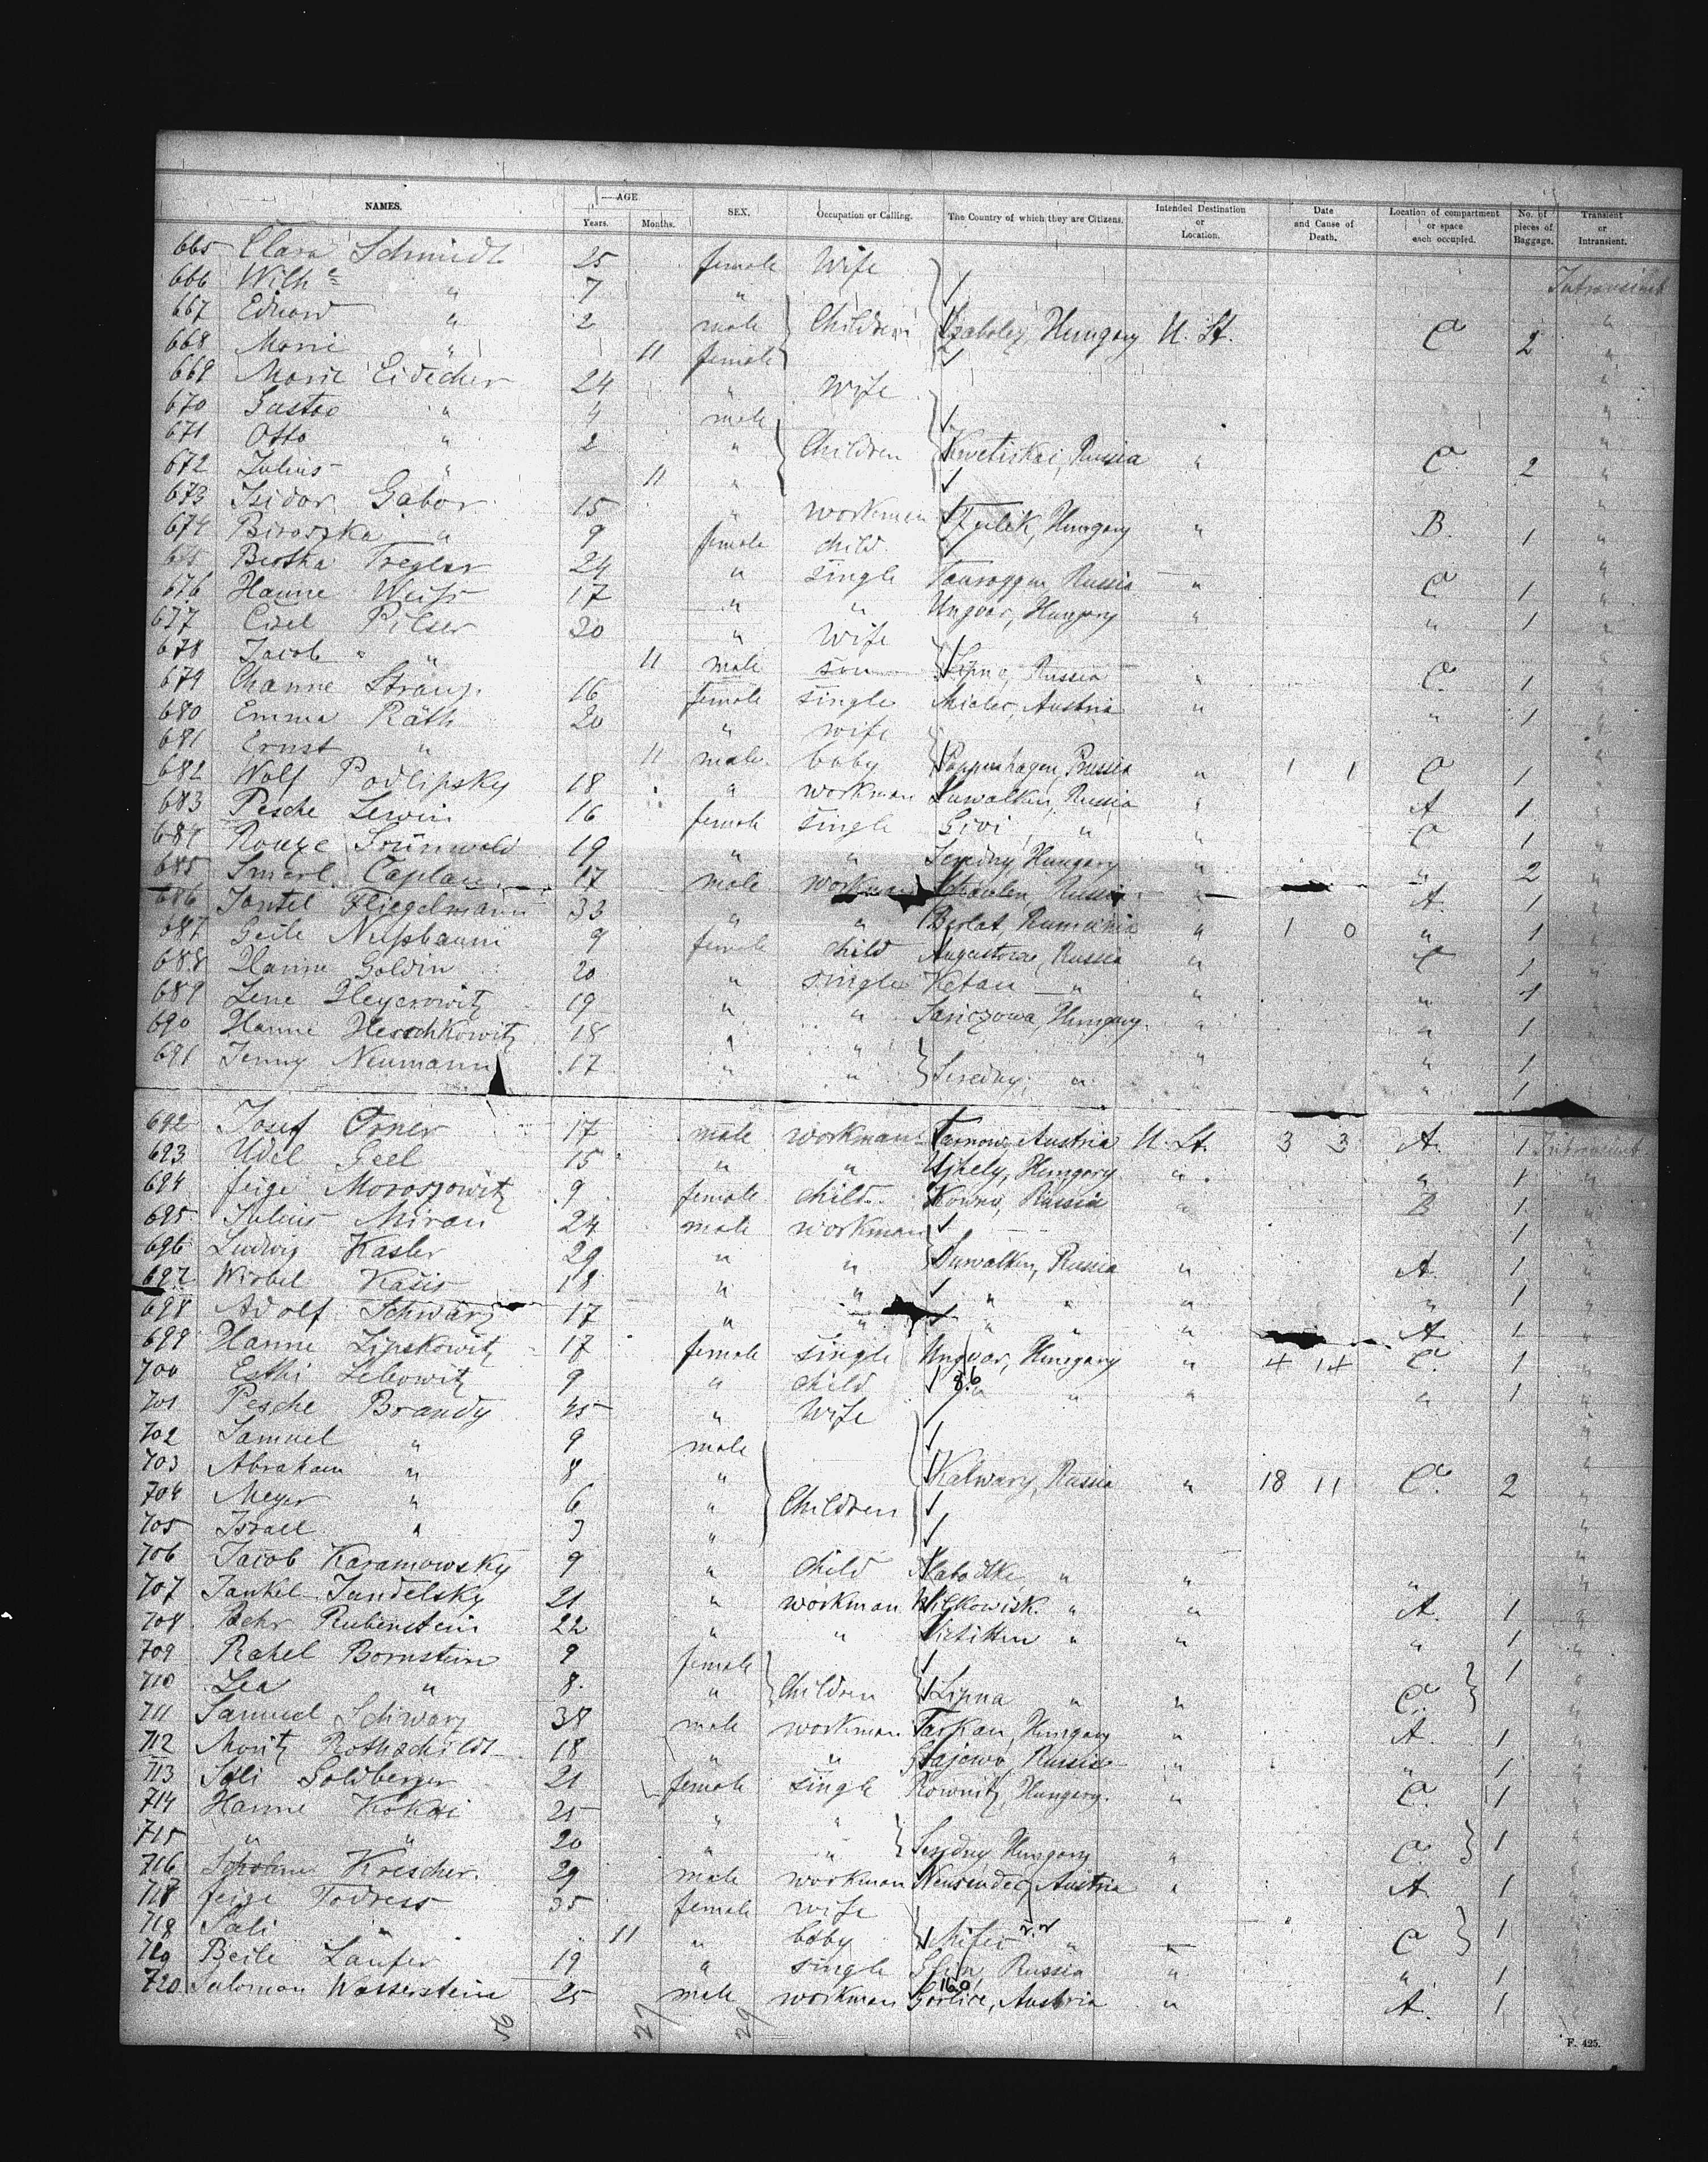 NAMES. AGE Years. Months. SEX. Occupation or Calling. The Country of which they are Citizens. Intended Destination or Location. Date and Cause of Death. Location of compartment or space each occupied. No. of pieces of Baggage. Transient or Intransient.
665 Clara Schmidt 25 female Wife Intransient
666 Wilhe " 7 " "
667 Eduard " 2 male Children Hungary U. St. C 2 "
668 Marie " 11 female "
669 Marie Eidecher 24 " Wife "
670 Gustav " 4 male "
671 Otto " 2 " Children Russia " C 2 "
672 Julius " 11 " "
673 Isidor Gabor 15 " workman Hungary " B. 1 "
674 Biroszka " 9 female child "
675 Bertha Tregler 24 " single Tauroggen Russia " C 1 "
676 Hanne Weiss 17 " " Ungvar, Hungary " " 1 "
677 Pilser 20 " Wife "
678 Jacob " 11 male son Lipno, Russia " C. 1 "
679 Channe Straus 16 female single Mielec, Austria " " 1 "
680 Emma Räth 20 " wife "
681 Ernst " 11 male baby Russia " 1 1 C 1 "
682 Wolf Podlipsky 18 " workman Suwalken, Russia " A 1 "
683 Pesche Lewin 16 female single " " C 1 "
684 Grünwald 19 " " Seredny Hungary " " 2 "
685 Smerl Caplan 17 male workman Schaulen, Russia " A. 1 "
686 Jontel Fliegelmann 33 " " Berlat, Rumania " 1 0 " 1 "
687 Geile Nussbaum 9 female child Augustowo, Russia " C 1 "
688 Hanne Goldin 20 " single " " " 1 "
689 Lene Heyerowitz 19 " " Hungary " " 1 "
690 Hanne Herschkowitz 18 " " " " 1
691 Jenny Neumann 17 " " Seredny, " " 1
692 Josef Orner 17 male workman Tarnow, Austria U. St. 3 3 A. 1 Intransient
693 Udel Geel 15 " " Ujhely, Hungary " " 1 "
694 Feige Moroszowitz 9 female child Kowno, Russia " B 1 "
695 Julius Miran 24 male workman 1 "
696 Ludwig Kasler 29 " " Suwalken, Russia " A. 1 "
697 18 " " " " " " 1 "
698 Adolf Schwarz 17 " " " " " A. 1 "
699 Hanne Lipskowitz 17 female single Ungvar, Hungary " 4 14 C. 1 "
700 Esthi Lebowitz 9 " child 86 " " " 1 "
701 Pesche Brandy 45 " Wife "
702 Samuel " 9 male "
703 Abraham " 8 " Kalwary, Russia " 18 11 C. 2 "
704 Meyer " 6 " Children "
705 Israel " 3 " "
706 Jacob Karamowsky 9 " child " " " "
707 Jankel Jandelsky 21 " workman Wilkowisk. " " A. 1 "
708 Behr Rubenstein 22 " " " " " 1 "
709 Rahel Bornstein 9 female 1 "
710 Lea " 8. " Children Lipna " " C. "
711 Samuel Schwarz 38 male workman Hungary " A. 1 "
712 Moritz Rothschild 18 " " Russia " " 1 "
713 Sali Goldberger 21 female single Hungary. " C. 1 "
714 Hanne Kokai 25 " " "
715 " " 20 " " Seredny Hungary " C. 1 "
716 Krescher 29 male workman Neusandec, Austria " A 1 "
717 Feige Todress 35 female wife "
718 Sali " 11 " baby " C 1 "
719 Beile Laufer 19 " single Russia " " 1 "
720 Salomon Wasserstein 25 male workman 160 Gorlice, Austria " A. 1 "
27 29
F. 425.